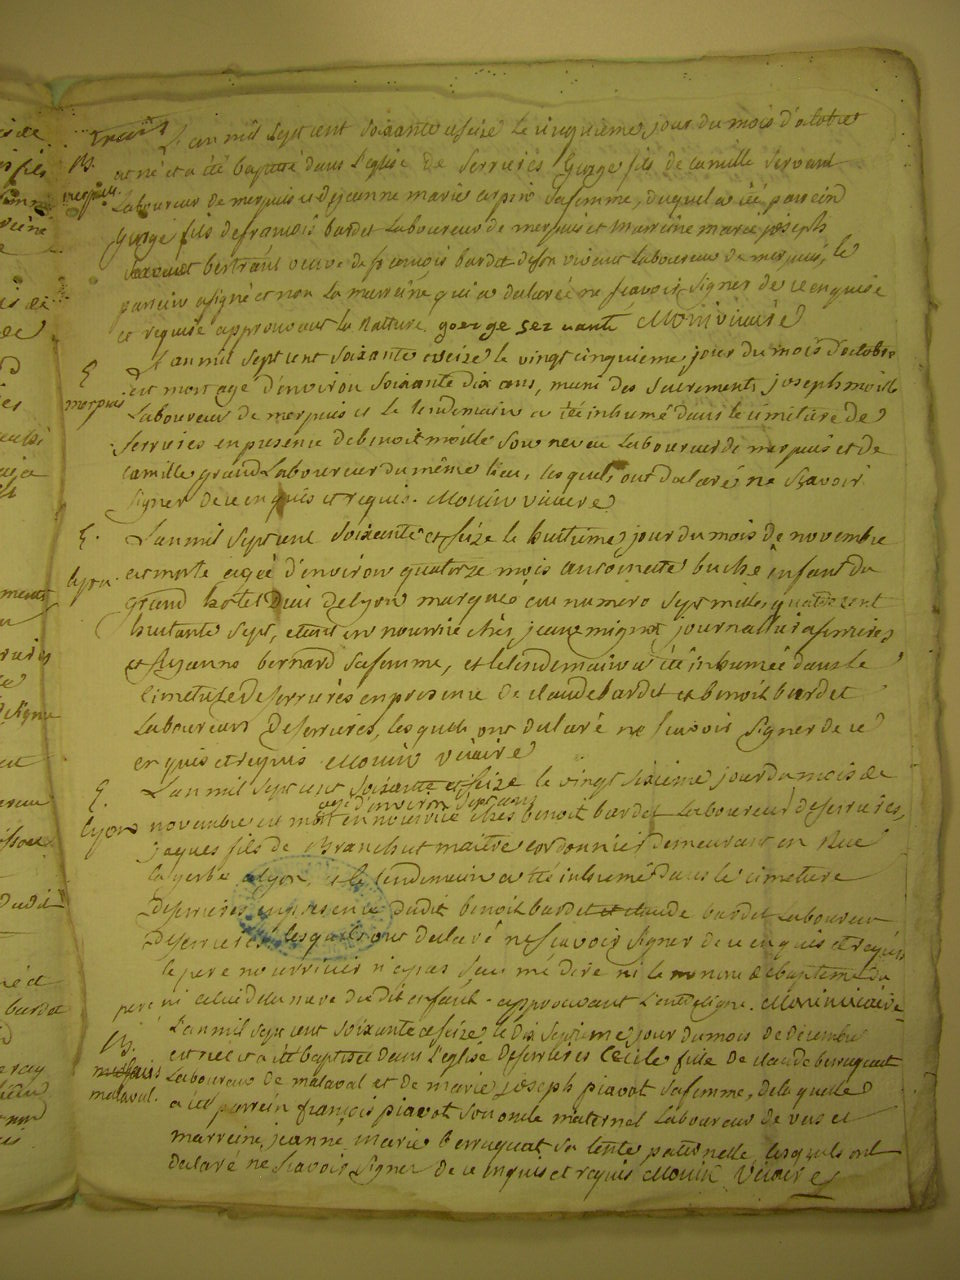 L'an mil sept cent soixante et seize le cinquieme jour du mois d'octobre
B. est né et a été baptisé dans l'eglise de Serrieres George fils de camille Servant
merpuis. Laboureur de merpuis et de jeanne marie carpin sa femme, duquel a été parrein
George fils de francois bardet Laboureur de merpuis et marreine marie joseph
bertrand veuve de francois bardet de son vivant Laboureur de merpuis, le
parrein a signé et non la marreine qui a declarée ne scavoir signer de ce enquise
et requise approuvant la Rature. goerge servante Mouin vicaire
L'an mil sept cent soixante et seize le vingt cinquieme jour du mois d'octobre
S est mort agé d'environ soixante dix ans, muni des sacrements joseph moille
merpuis Laboureur de merpuis et le lendemain a été inhumé dans le cimetiere de
Serrieres en presence de benoit moille son neveu Laboureur de merpuis et de
camille grand Laboureur du même lieu, lesquels ont declaré ne scavoir
signer de ce enquis et requis. Mouin vicaire
S. L'an mil sept cent soixante et seize le huitieme jour du mois de novembre
lyon. est morte agée d'environ quatorze mois antoinette buche enfant du
grand hotel Dieu de lyon marquée au numero sept mille quatre cent
huitante sept, etant en nourrice chés jean mignot journallier a serrieres
et Suzanne bernard sa femme, et le lendemain a été inhumée dans le
cimetiere de serrieres en presence de claude bardet et benoit bardet
Laboureurs de serrieres, lesquels ont declaré ne scavoir signer de ce
enquis et requis Mouin vicaire
S. L'an mil sept cent soixante et seize le vingt sixieme jour du mois de
agé d'environ sept ans
lyon novembre est mort en nourrice chés benoit bardet Laboureur de serrieres,
jaques fils de Branchut maitre cordonnier demeurant en Rue
la gerbe a lyon, et le lendemain a été inhumé dans le cimetiere
de serrieres en presence dudit benoit bardet et claude bardet Laboureur
de serrieres, lesquels ont declaré ne scavoir signer de ce enquis et requis
le pere nourricier n'a pas scu me dire ni le nom de baptême du
pere ni celui de la mere dudit enfant - approuvant l'entreligne. Mouin vicaire
L'an mil sept cent soixante et seize le dix septieme jour du mois de decembre
B. est née et a été baptisée dans l'eglise de serrieres Cecile fille de claude berruquat
malaval. Laboureur de malaval et de marie joseph piavot sa femme, de laquelle
a été parrein francois piavot son oncle maternel Laboureur de vers et
marreine jeanne marie berruquat sa tente paternelle, lesquels ont
declaré ne scavoir signer de ce enquis et requis Mouin Vicaire